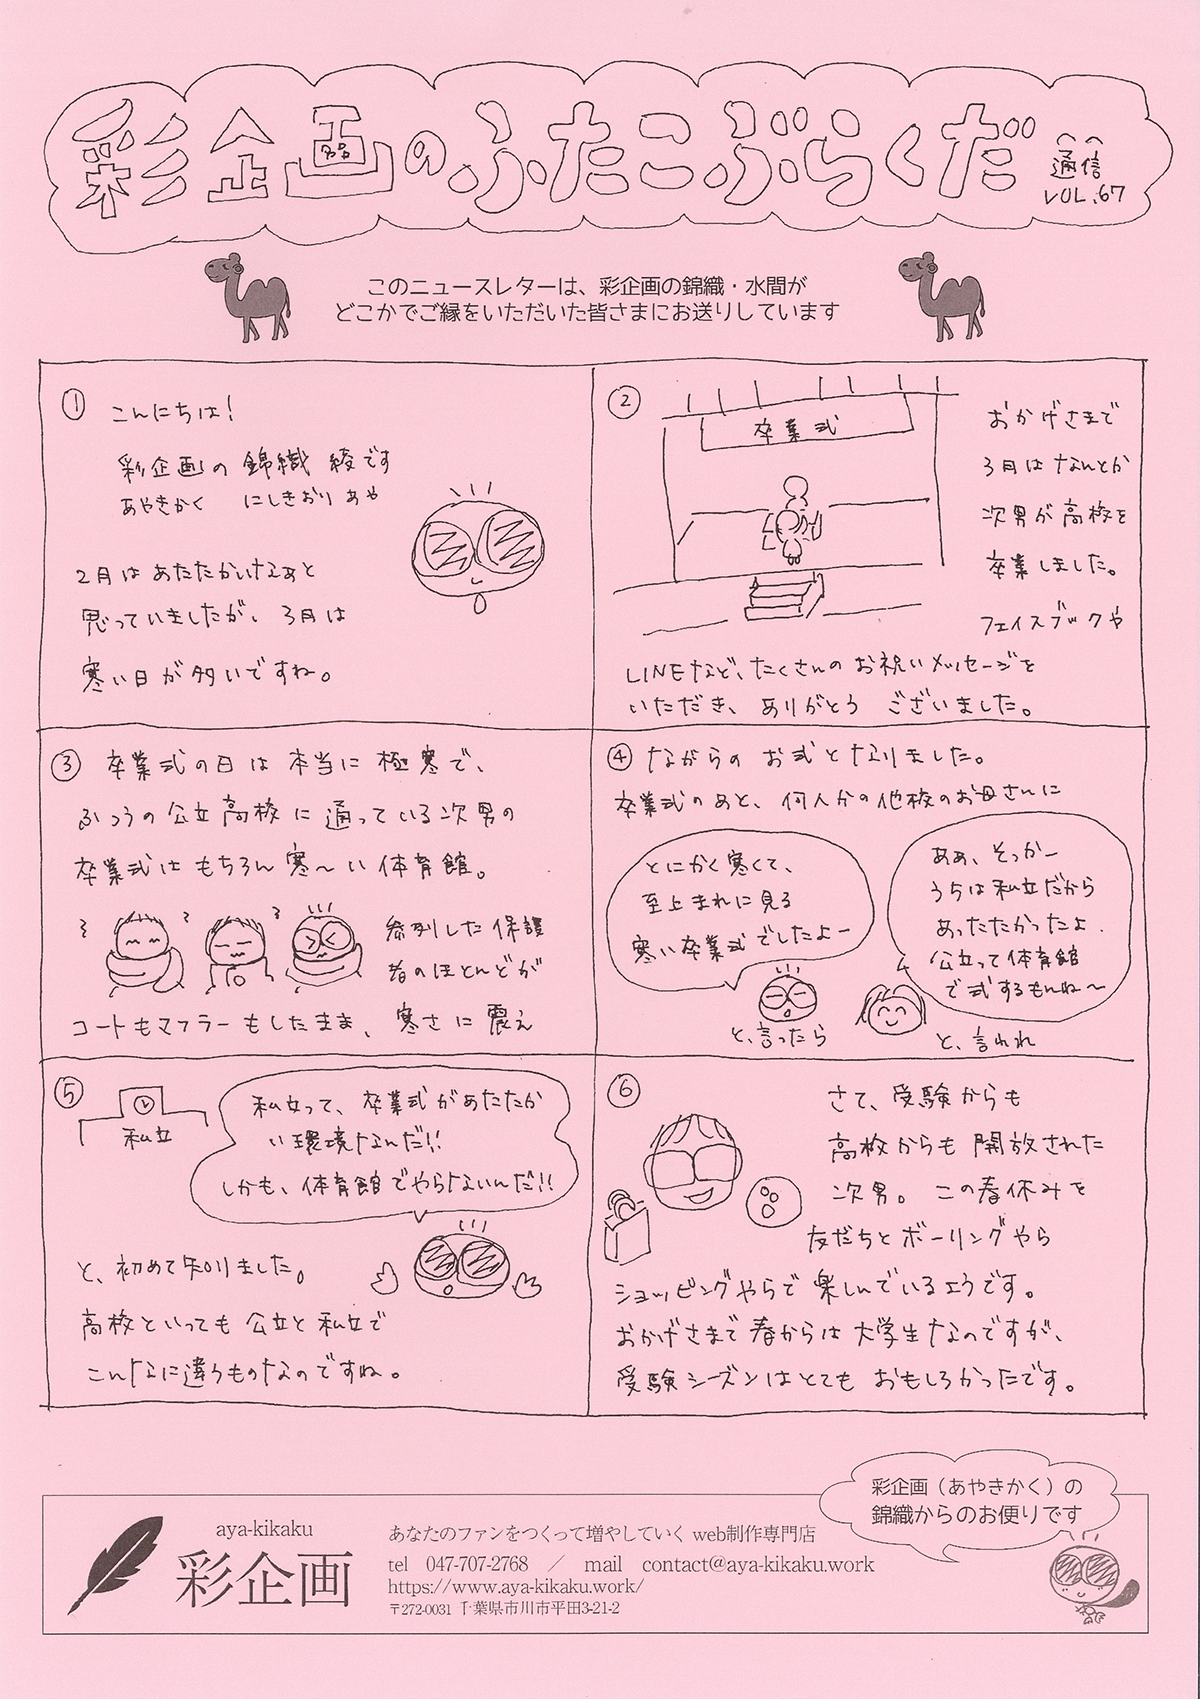 彩企画のふたこぶらくだ
通信
VOL.67
このニュースレターは、彩企画の錦織・水間が
どこかでご縁をいただいた皆さまにお送りしています
① こんにちは!
彩企画の 錦織 綾です
あやきかく にしきおり あや
2月は あたたかいなあと
思っていましたが、3月は
寒い日が多いですね。
②
卒業式
おかげさまで
3月はなんとか
次男が高校を
卒業しました。
フェイスブックや
LINEなど、たくさんの お祝いメッセージを
いただき、ありがとう ございました。
③ 卒業式の日は 本当に 極寒で、
ふつうの公立高校に通っている次男の
卒業式は もちろん 寒〜い 体育館。
参列した保護
者のほとんどが
コートもマフラーもしたまま、寒さに震え
④ ながらの お式となりました。
卒業式のあと、何人かの他校のお母さんに
とにかく寒くて、
至上まれに見る
寒い卒業式でしたよー
と、言ったら
ああ、そっかー
うちは私立だから
あったたかったよ.
公立って体育館
で式するもんね〜
と、言われ
⑤
私立
私立って、卒業式があたたか
い環境なんだ!!
しかも、体育館でやらないんだ!!
と、初めて知りました。
高校といっても 公立と私立で
こんなに違うものなのですね。
⑥ さて、受験からも
高校からも開放された
次男。この春休みを
友だちとボーリングやら
ショッピングやらで楽しんでいるようです。
おかげさまで春からは大学生なのですが、
受験シーズンはとても おもしろかったです。
彩企画(あやきかく)の
錦織からのお便りです
aya-kikaku
彩企画
あなたのファンをつくって増やしていく web制作専門店
tel 047-707-2768 / mail contact@aya-kikaku.work
https://www.aya-kikaku.work/
〒272-0031 千葉県市川市平田3-21-2